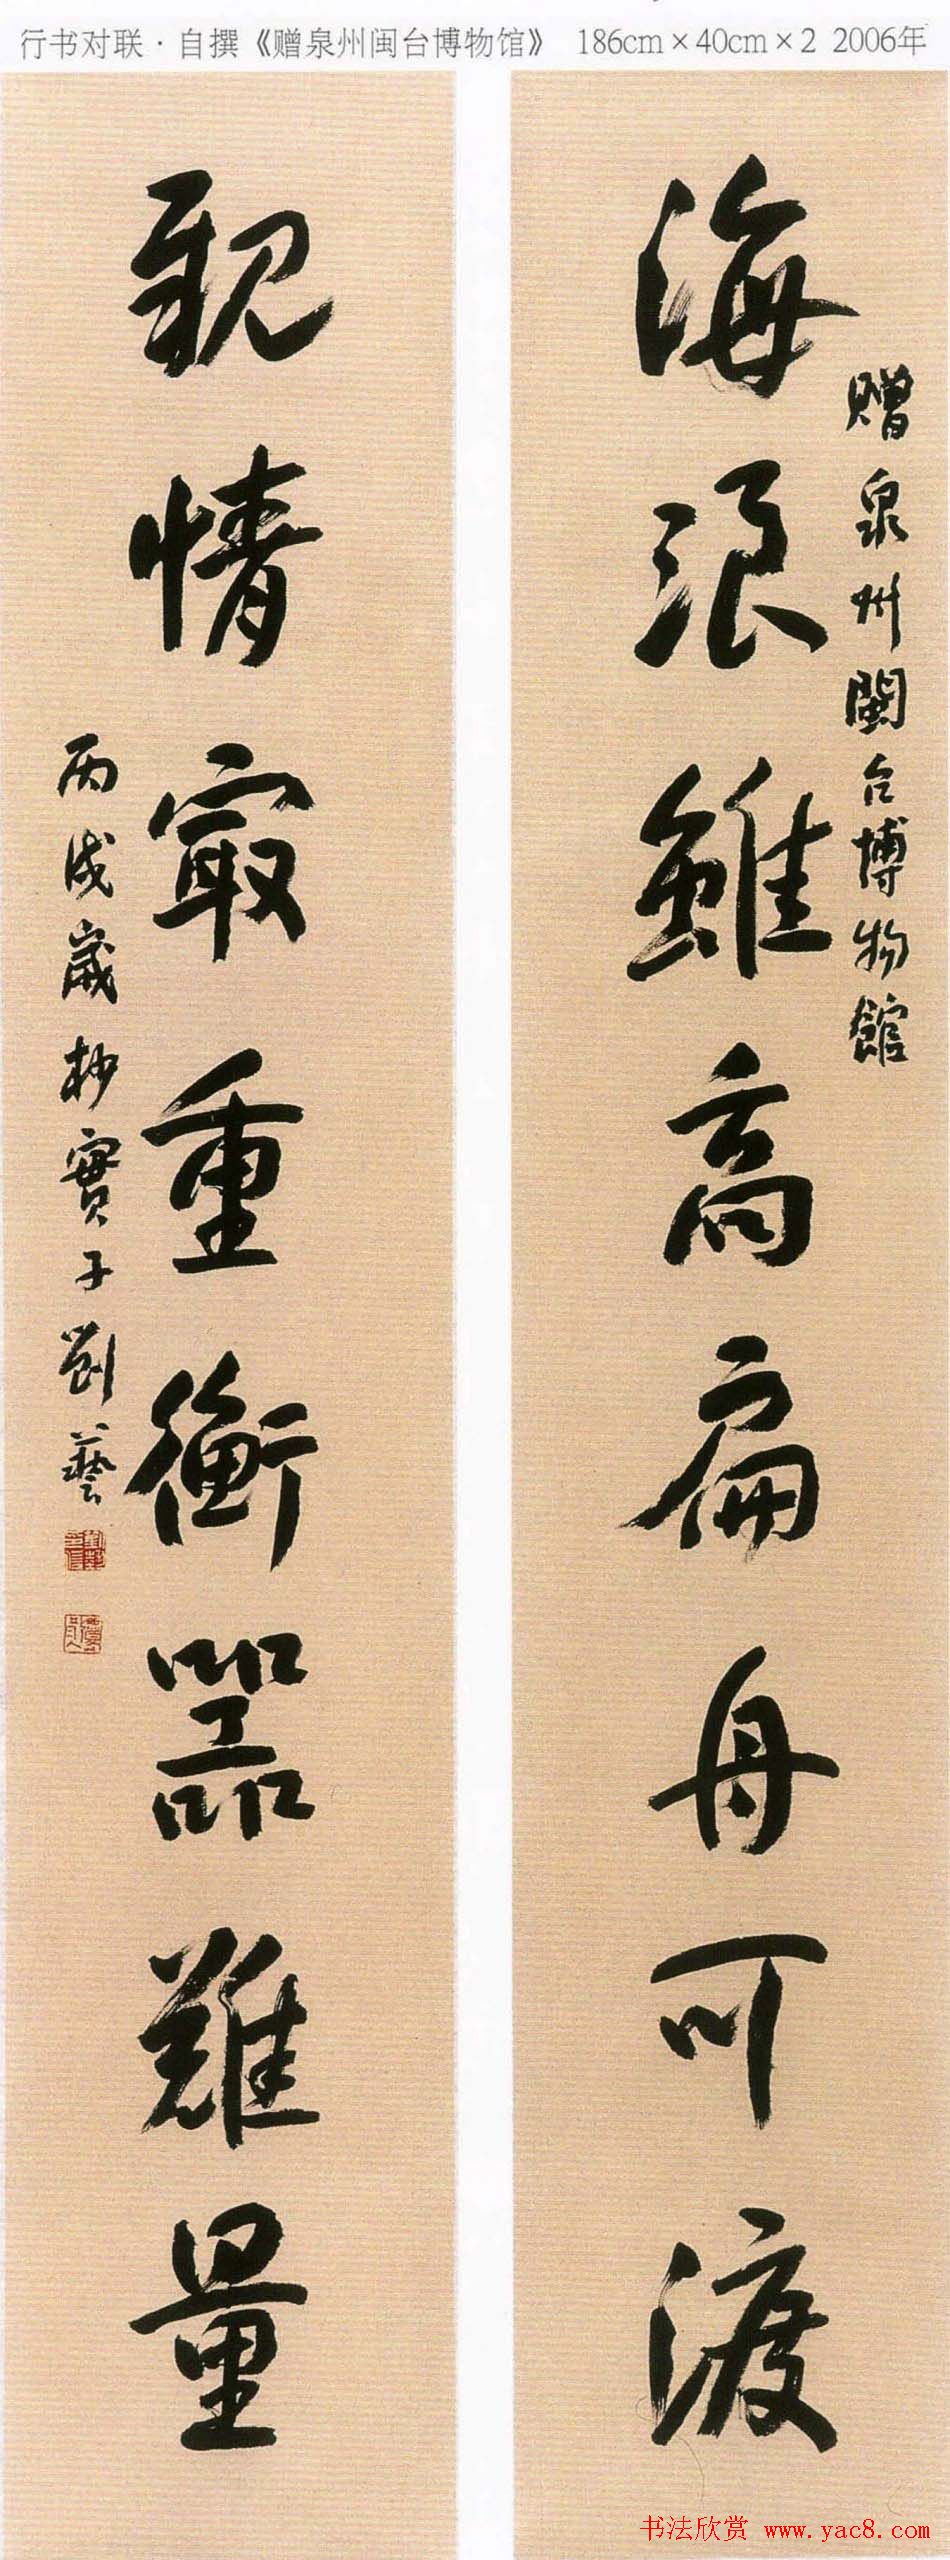 行书对联·自撰《赠泉州闽台博物馆》 186cm×40cm×2 2006年
贈泉州閩台博物館
海浪雖高扁舟可渡
親情㝡重衡器難量
丙戌歲杪實子劉藝
书法欣赏 www.yac8.com